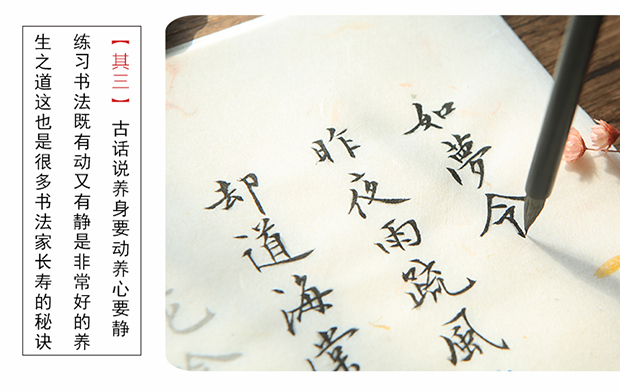 【其三】 古话说养身要动养心要静
练习书法既有动又有静是非常好的养
生之道这也是很多书法家长寿的秘诀
如夢令
昨夜雨疏風
却道海棠